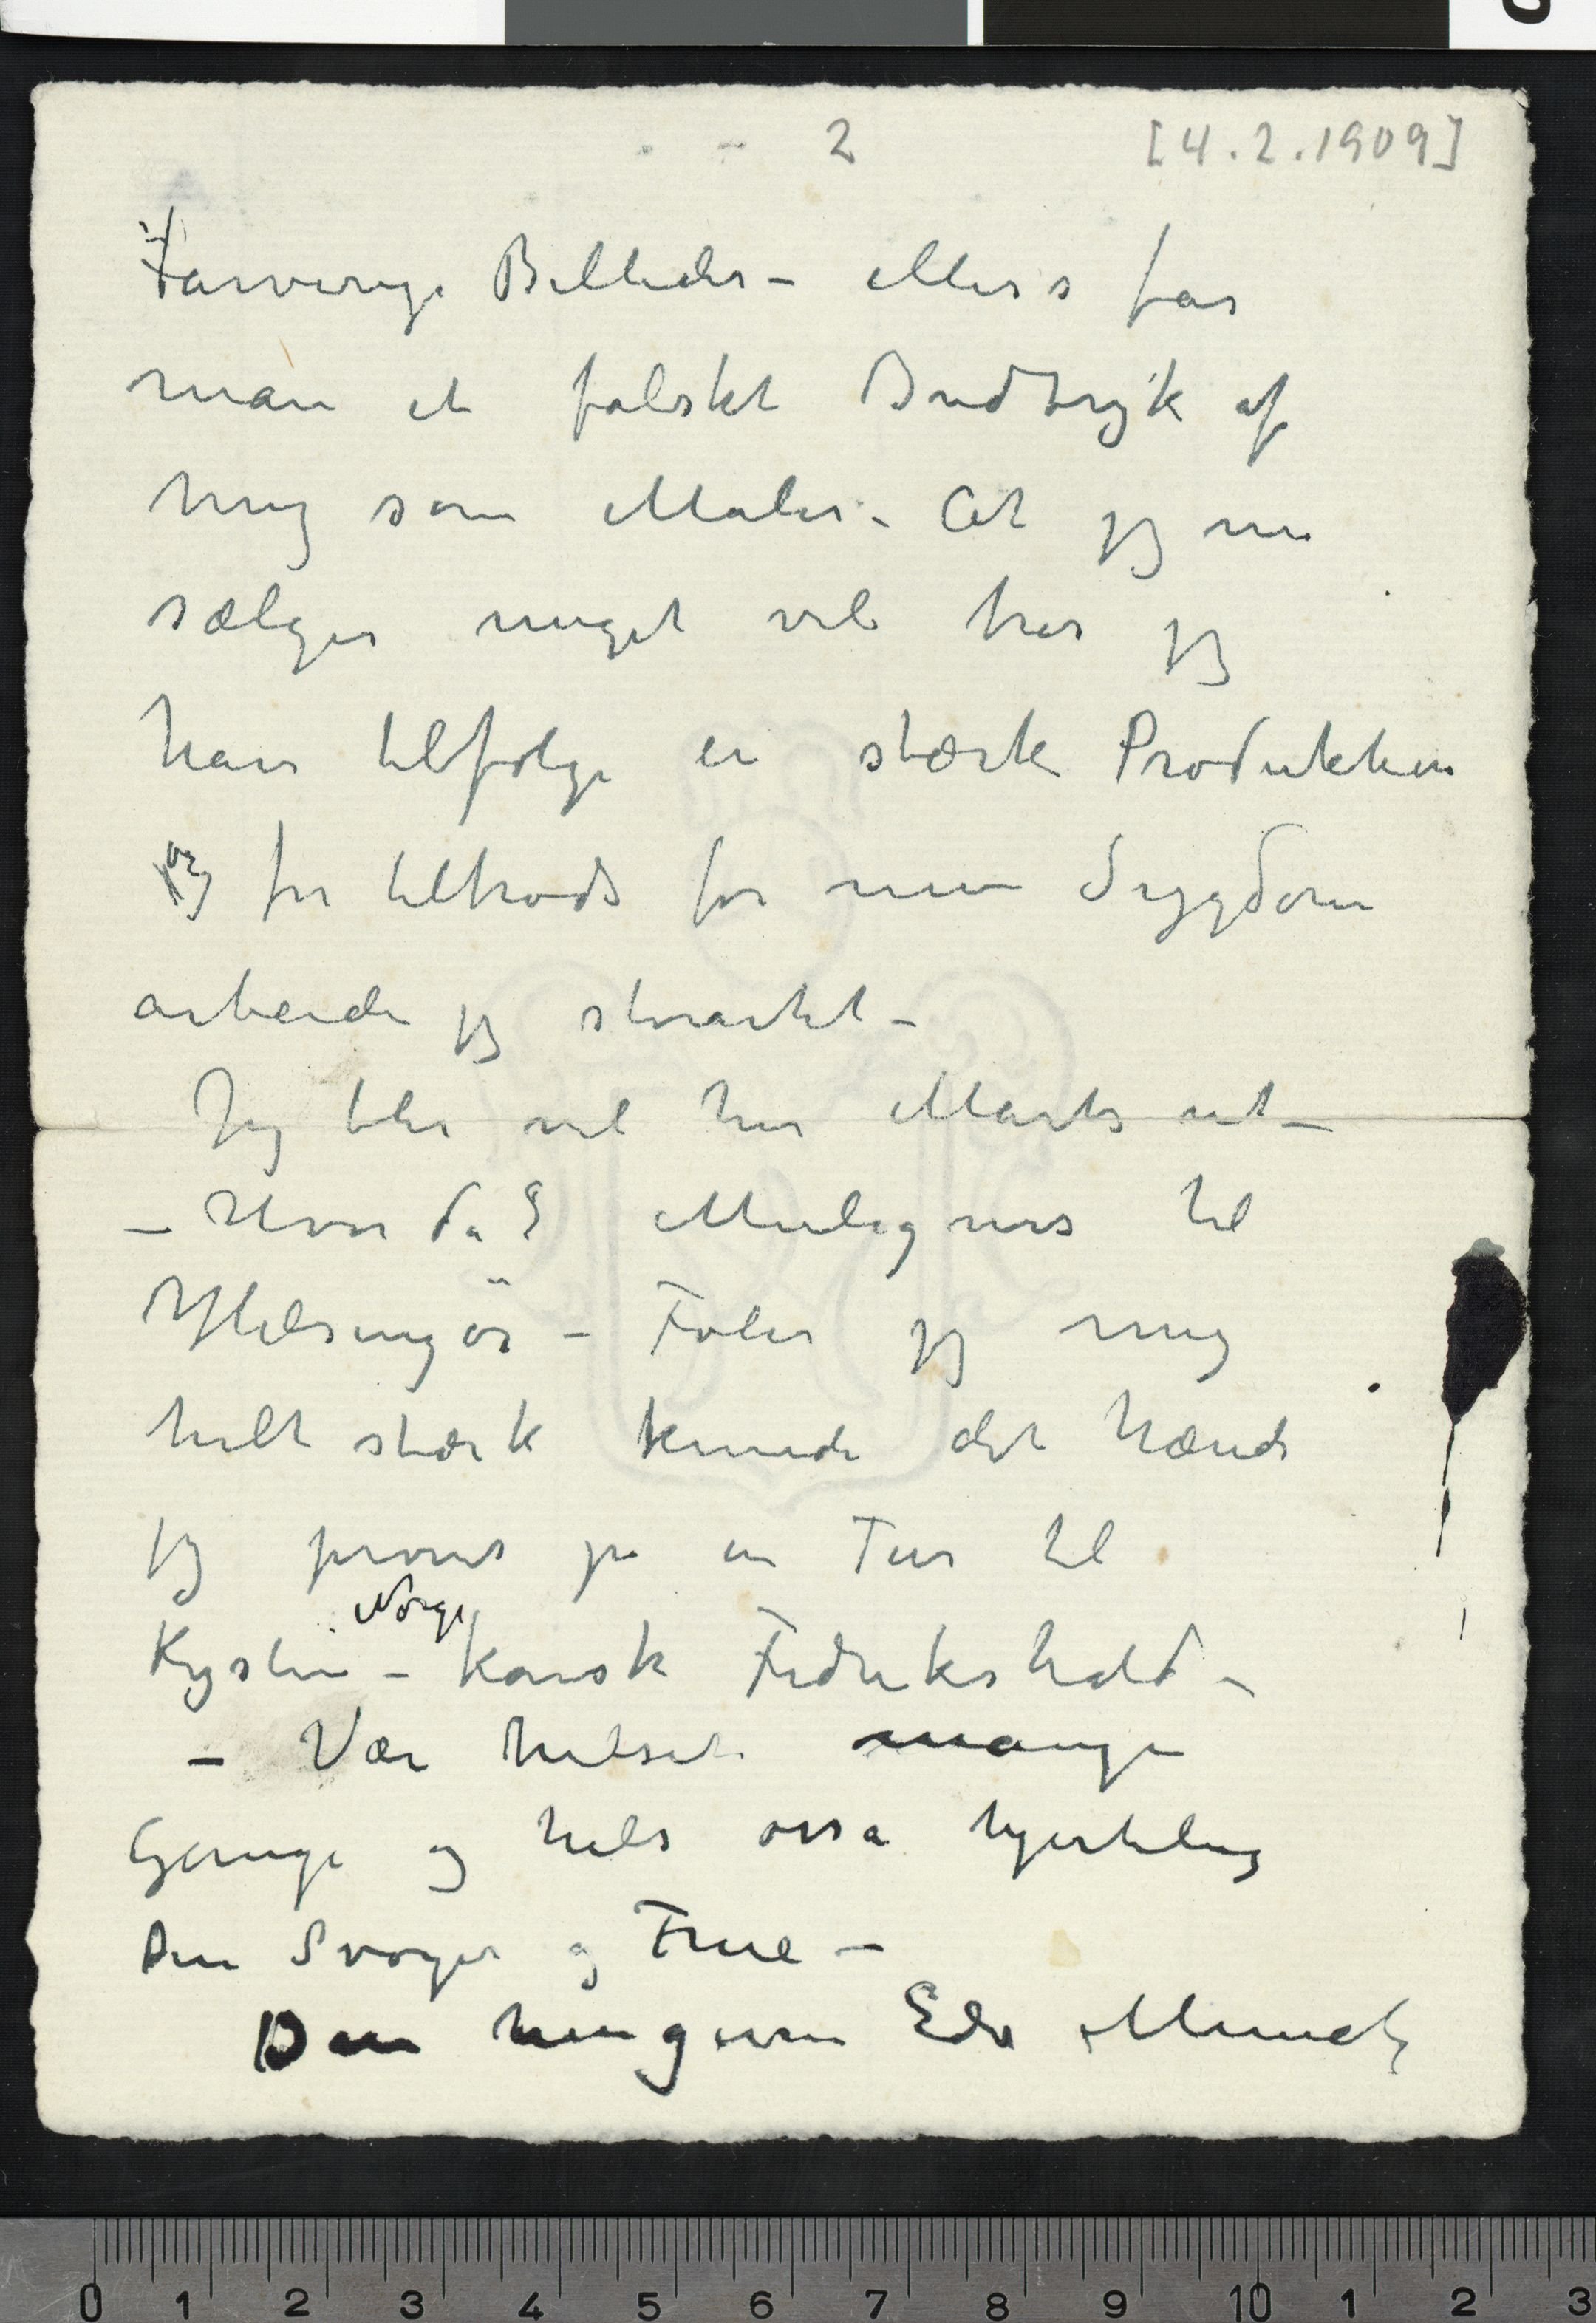 2 [4.2.1909]
Farverige Billeder – ellers får
man et falskt Indtryk af
mig som Maler – At jeg nu
sælger meget vel har jeg
han tilfølge en stærk Produktion
og for tiltrods for min Sygdom
arbeider jeg storartet –
Jeg blir vel her Marts ut –
– Hvor da? Muligens til
Helsingør – Føler jeg mig
helt stærk kunde det hænde
jeg prøvet på en Tur til
Norge
Kysten – kansk Fredrikshald –
– Vær hilset mange
Gange og hils osså hjertelig
Din Svoger og Frue –
Din hengivne Edv Munch
0 1 2 3 4 5 6 7 8 9 10 1 2 3